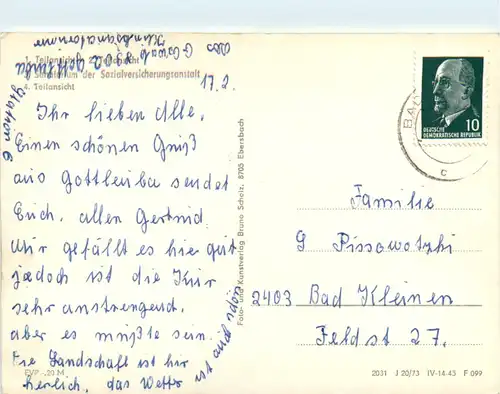 1. Teilansicht 2. Teilansicht
3. Sanatorium der Sozialversicherungsanstalt
4. Teilansicht
17.2.
Ihr lieben Alle.
Einen schönen Gruß
aus Gottleuba sendet
Euch allen Gertrud.
Mir gefällt es hier gut
jedoch ist die Kur
sehr anstrengend.
aber es müßte sein.
Die Landschaft ist hir
herlich, das Wetter
ist auch schön
8302 Gottleuba
Kliniksanatorium
Foto- und Kunstverlag Bruno Scholz, 8705 Ebersbach
10
DEUTSCHE
DEMOKRATISCHE REPUBLIK
BAD
c
Familie
G Pissowotzki
2403 Bad Kleinen
Feldst 27.
EVP -,20 M
2031 J 20/73 IV-14-45 F 099